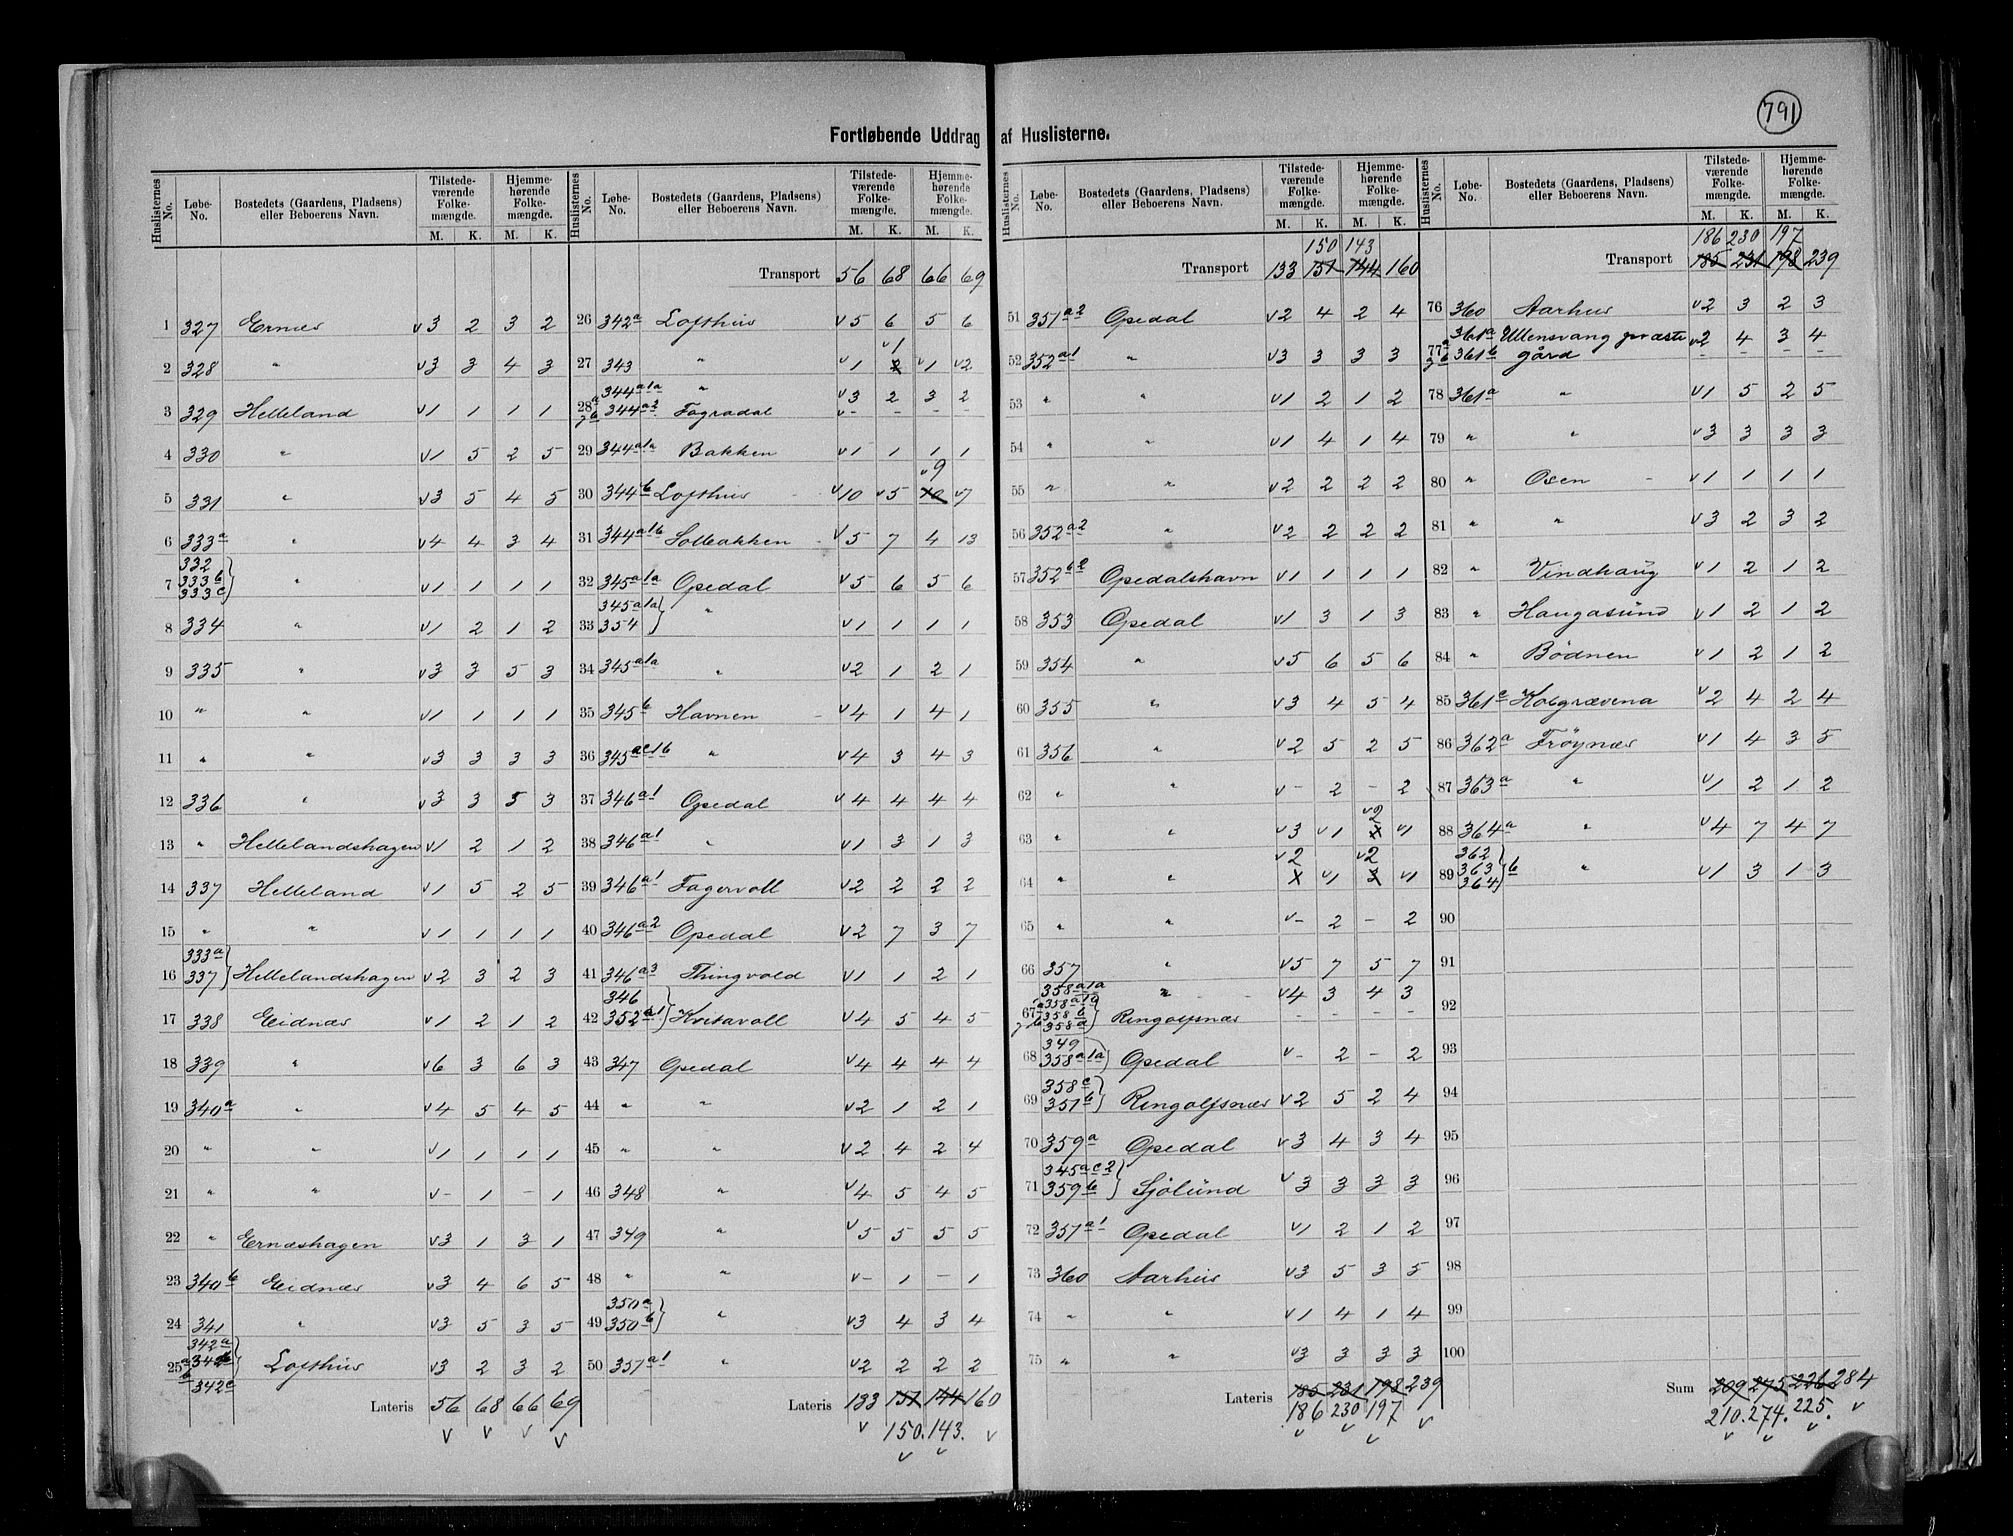 791
Fortløbende Uddrag af Huslisterne.
Huslisternes No. Løbe-No. Bostedets (Gaardens, Pladsens) eller Beboerens Navn. Tilstedeværende Folkemængde. M. K. Hjemmehørende Folkemængde. M. K.
1 327 Ernæs v3 2 3 2
2 328 " v3 3 4 3
3 329 Helleland v1 1 1 1
4 330 " v1 5 2 5
5 331 " v3 5 4 5
6 333a " v4 4 3 4
7 332 333b 333c " v1 1 1 1
8 334 " v1 2 1 2
9 335 " v3 3 5 3
10 " " v1 1 1 1
11 " " v3 3 3 3
12 336 " v3 3 5 3
13 " Hellelandshagen v1 2 1 2
14 337 Helleland v1 5 2 5
15 " " v1 1 1 1
16 333a 337 Hellelandshagen v2 3 2 3
17 338 Eidnæs v1 2 1 2
18 339 " v6 3 6 3
19 340a " v4 5 4 5
20 " " v1 1 1 1
21 " " v- 1 - 1
22 " Ernæshagen v3 1 3 1
23 340b Eidnæs v3 4 6 5
24 341 " v3 5 3 5
25 a b 342a 342b 342c Lofthus v3 2 3 2
Lateris 56 68 66 69
v v v v
Huslisternes No. Løbe-No. Bostedets (Gaardens, Pladsens) eller Beboerens Navn. Tilstedeværende Folkemængde. M. K. Hjemmehørende Folkemængde. M. K.
Transport 56 68 66 69
26 342a Lofthus v5 6 5 6
v1
27 343 " v1 2 v1 v2
28 a 344a1a " v3 2 3 2
b 344a2 Fagradal v- - - -
29 344a1a Bakken v1 1 1 1
v9
30 344b Lofthus v10 v5 10 v7
31 344a1b Solbakken v5 7 4 13
32 345a1a Opedal v5 6 5 6
33 345a1a 354 " v1 1 1 1
34 345a1a " v2 1 2 1
35 345b Havnen v4 1 4 1
36 345ac1b " v4 3 4 3
37 346a1 Opedal v4 4 4 4
38 346a1 " v1 3 1 3
39 346a1 Fagervoll v2 2 2 2
40 346a2 Opedal v2 7 3 7
41 346a3 Thingvold v1 1 2 1
42 346 352a1 Kvitavoll v4 5 4 5
43 347 Opedal v4 4 4 4
44 " " v2 1 2 1
45 " " v2 4 2 4
46 348 " v4 5 4 5
47 349 " v5 5 5 5
48 " " v- 1 - 1
49 350a 350b " v3 4 3 4
50 351a1 " v2 2 2 2
Lateris 133 151 144 160
v 150. 143. v
v v
Huslisternes No. Løbe-No. Bostedets (Gaardens, Pladsens) eller Beboerens Navn. Tilstedeværende Folkemængde. M. K. Hjemmehørende Folkemængde. M. K.
150 143
Transport 133 151 144 160
51 351a2 Opedal v2 4 2 4
52 352a1 " v3 3 3 3
53 " " v1 2 1 2
54 " " v1 4 1 4
55 " " v2 2 2 2
56 352a2 " v2 2 2 2
57 352b2 Opedalshavn v1 1 1 1
58 353 Opedal v1 3 1 3
59 354 " v5 6 5 6
60 355 " v3 4 5 4
61 356 " v2 5 2 5
62 " " v- 2 - 2
v2
63 " " v3 v1 v1
v2 v2
64 " " v1 3 v1
65 " " v- 2 - 2
66 357 " v5 7 5 7
67 a 358a1a " v4 3 4 3
b 358a1a 358b 358d Ringolfsnæs - - - -
68 349 358a1a Opedal v- 2 - 2
69 358c 351b Ringolfsnæs v2 5 2 4
70 359a Opedal v3 4 3 4
71 345ac2 359b Sjölund v3 3 3 3
72 357a1 Opedal v1 2 1 2
73 360 Aarhus v3 5 3 5
74 " " v1 4 1 4
75 " " v3 3 3 3
Lateris 185 231 198 239
186 230 197 v
v v v
Huslisternes No. Løbe-No. Bostedets (Gaardens, Pladsens) eller Beboerens Navn. Tilstedeværende Folkemængde. M. K. Hjemmehørende Folkemængde. M. K.
186 230 197
Transport 185 231 198 239
76 360 Aarhus v2 3 2 3
77 a 361a Ullensvang præste v2 4 3 4
b 361b gård - - - -
78 361a " v1 5 2 5
79 " " v3 3 3 3
80 " Oxen v1 1 1 1
81 " " v3 2 3 2
82 " Vindhaug v1 2 1 2
83 " Haugasund v1 2 1 2
84 " Bödnen v1 2 1 2
85 361c Kolgrævena v2 4 2 4
86 362a Fröynæs v1 4 3 5
87 363a " v1 2 1 2
88 364a " v4 7 4 7
89 362 363 364 b " v1 3 1 3
90
91
92
93
94
95
96
97
98
99
100
Sum 209 275 226 284
210. 274. 225. v
v v v